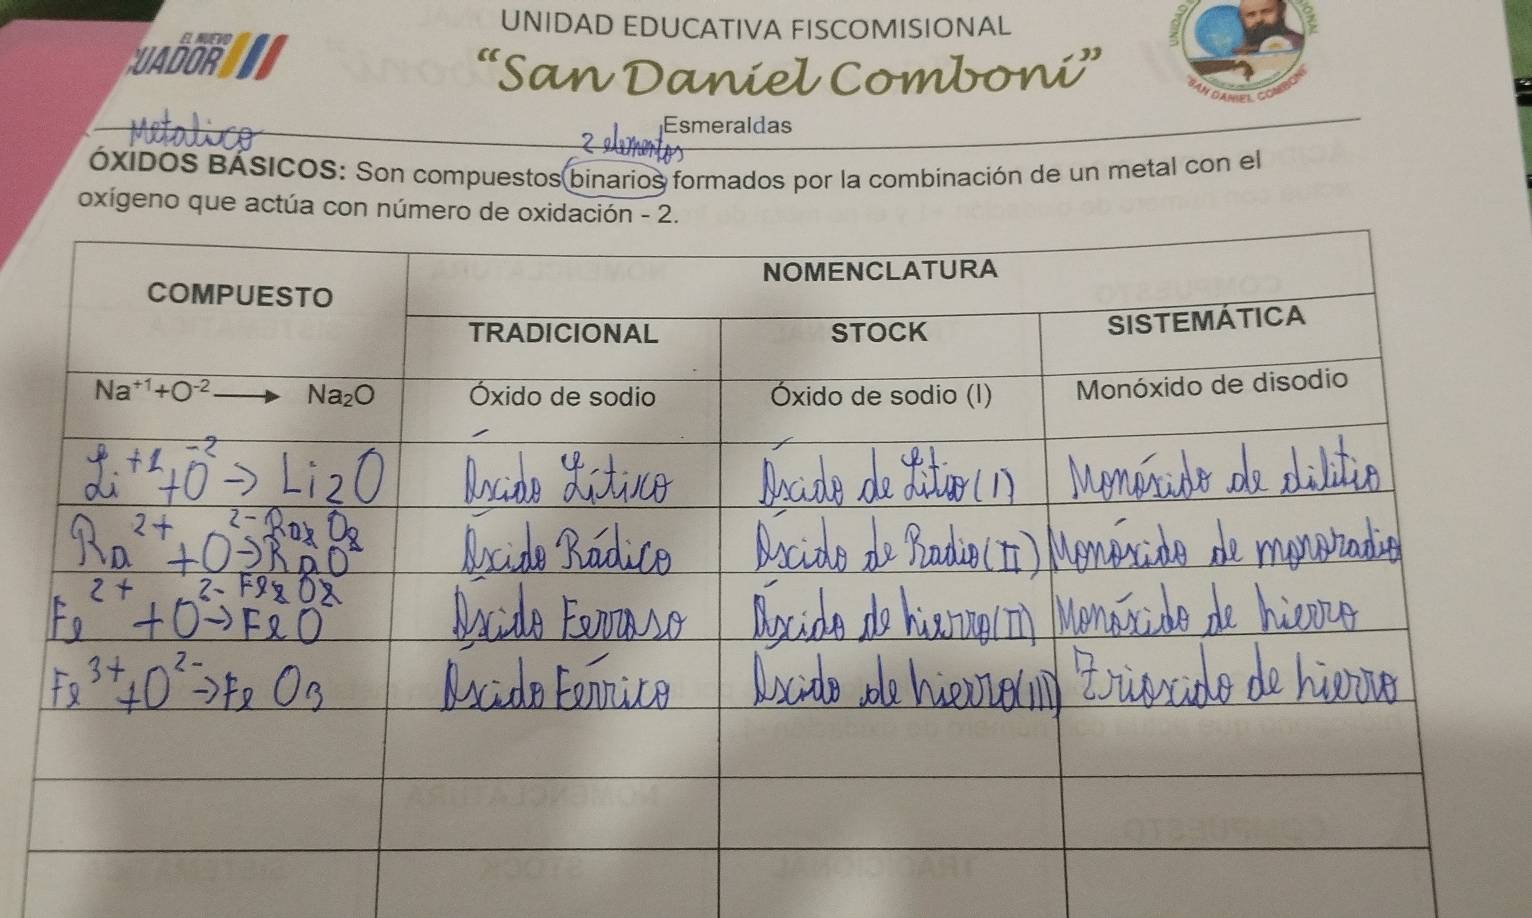 UNIDAD EDUCATIVA FISCOMISIONAL
EL NUEVO
CUADOR
“San Daniel Comboni”
UNIDAD
SAN DANIEL COMBONI
Esmeraldas
Metalico
2 elementos
ÓXIDOS BÁSICOS: Son compuestos binarios formados por la combinación de un metal con el
oxígeno que actúa con número de oxidación - 2.
COMPUESTO NOMENCLATURA
TRADICIONAL STOCK SISTEMÁTICA
Na⁺¹+O⁻² → Na₂O Óxido de sodio Óxido de sodio (I) Monóxido de disodio
Li⁺¹+O⁻² → Li2O Óxido Lítico Óxido de Litio (I) Monóxido de dilitio
Ra²⁺ + O²⁻ → Ra2 O2 RaO Óxido Rádico Óxido de Radio (II) Monóxido de monoradio
Fe²⁺ + O²⁻ → Fe2 O2 FeO Óxido Ferroso Óxido de hierro (II) Monóxido de hierro
Fe³⁺ + O²⁻ → Fe2 O3 Óxido Férrico Óxido de hierro (III) Trióxido de hierro